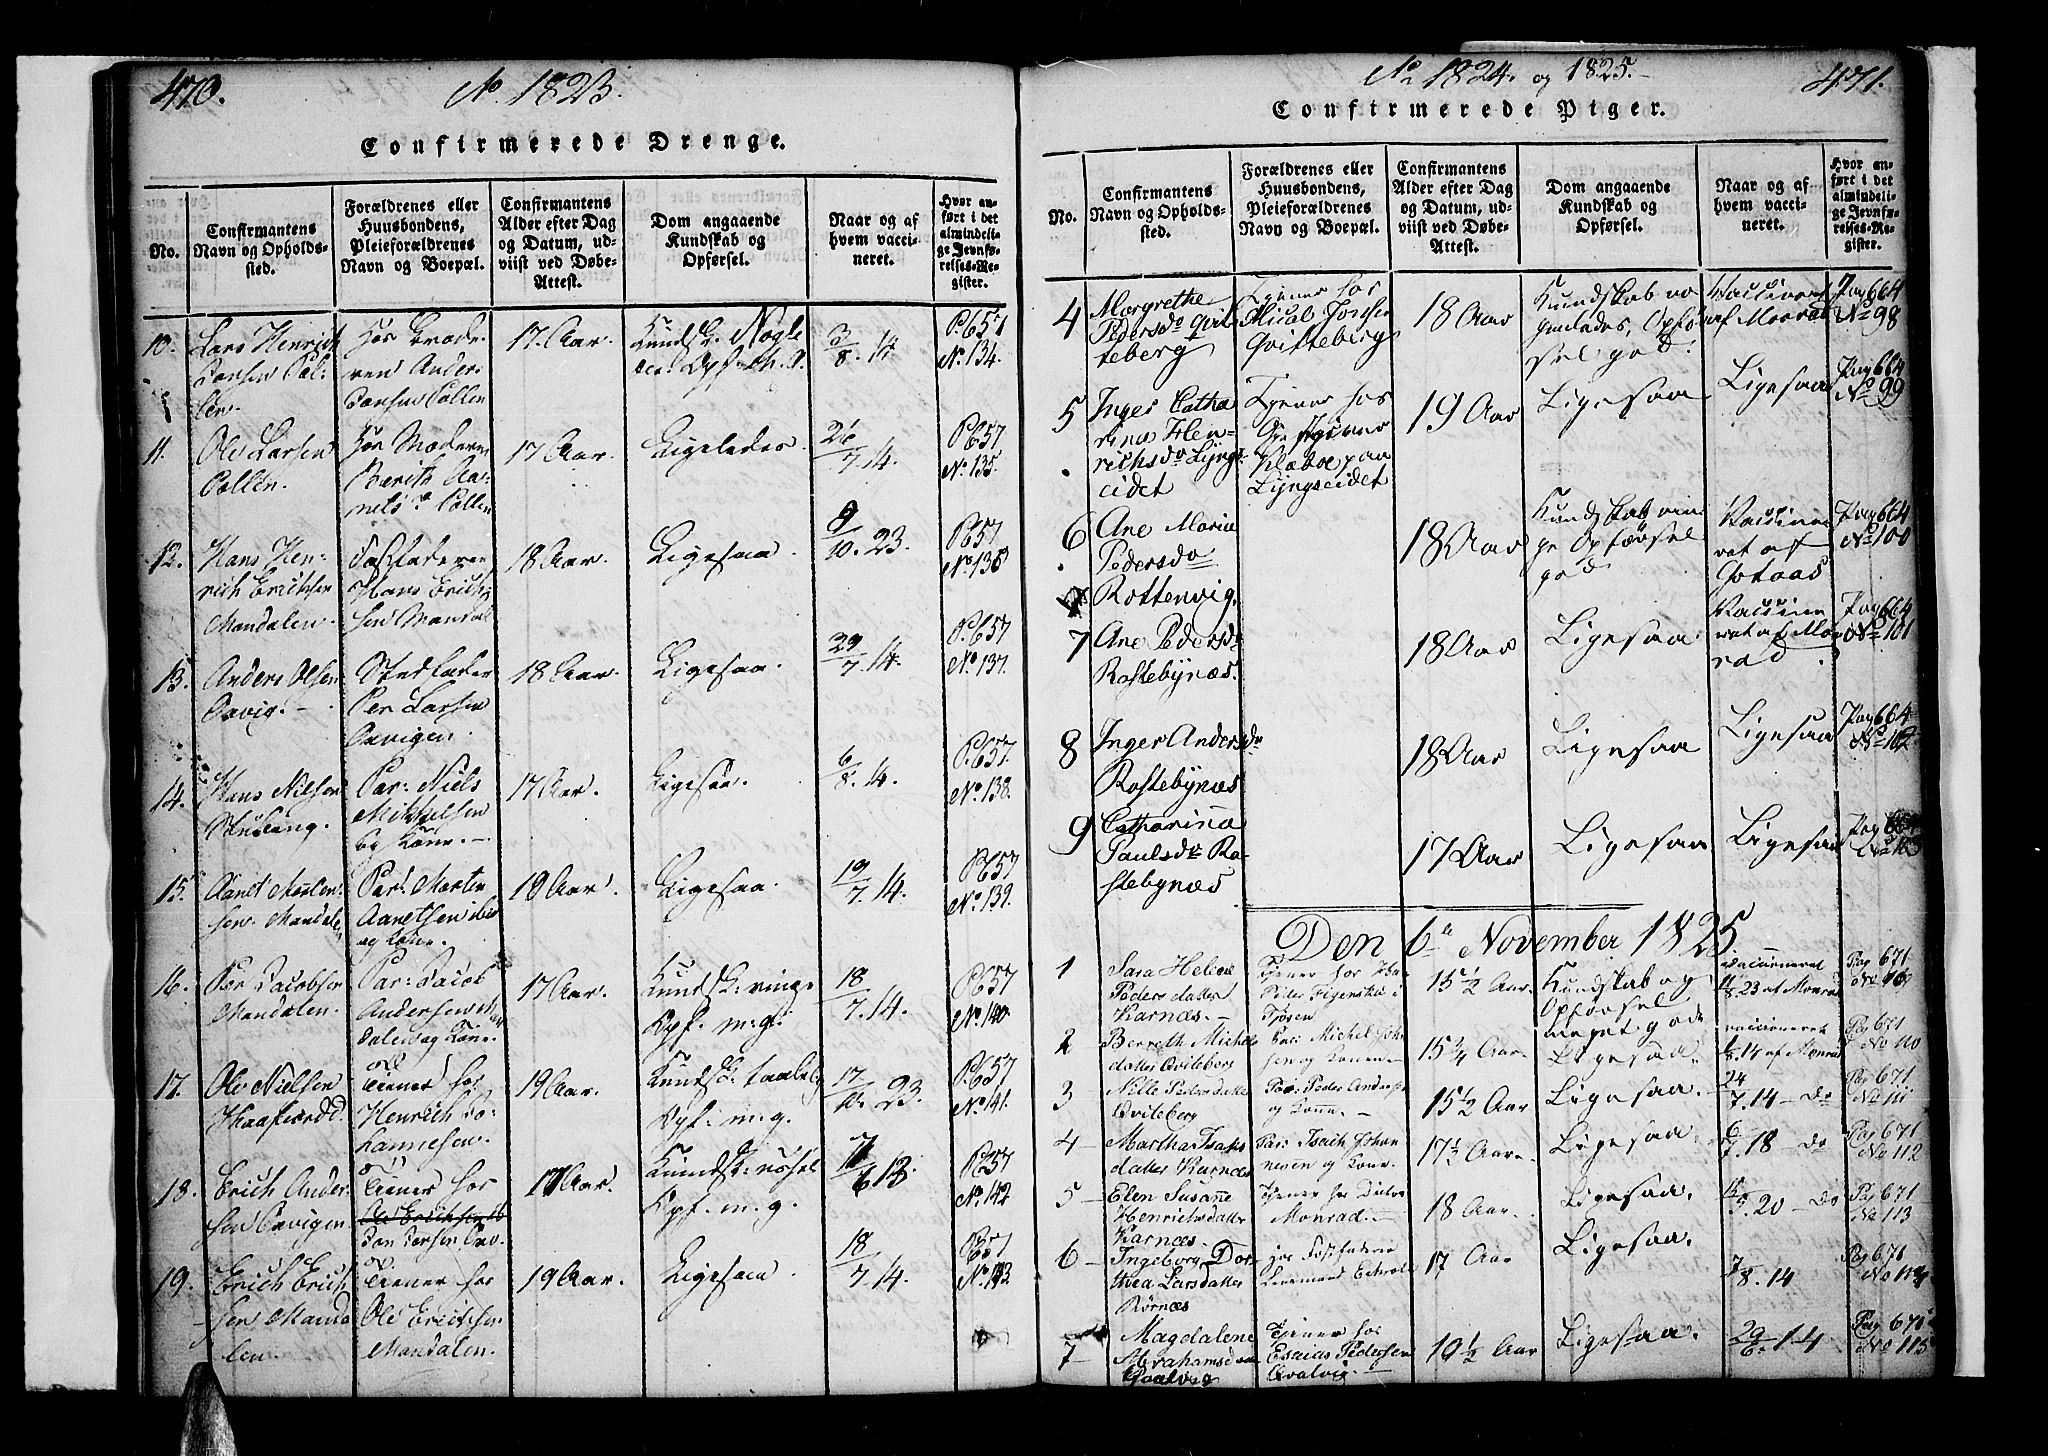 470.
No. 1823.
Confirmerede Drenge.
No.
Confirmantens
Navn og Opholds-
sted.
Forældrenes eller
Huusbondens,
Pleieforældrenes
Navn og Boepæl.
Confirmantens
Alder efter Dag
og Datum, ud-
viist ved Døbe-
Attest.
Dom angaaende
Kundskab og
Opførsel.
Naar og af
hvem vacci-
neret.
Hvor an-
ført i det
almindeli-
ge Jevnfø-
relses-Re-
gister.
10.
Lars Henrich
Jonsen Pol-
len.
Hos Brode-
ren Anders
Jonsen Pollen
17. Aar.
3/8. 14
P. 657
No. 134.
11.
Ole Larsen
Pollen.
Hos Moderen
Berith
Pollen
17 Aar.
Ligeledes.
26/7. 14.
P. 657
No. 135.
12.
Hans Hen-
rich Erichsen
Mandalen.
Hans Erich-
sen Mandal
18 Aar.
Ligesaa.
9/10. 23.
P. 657
No. 136
13.
Anders Olsen
Orvig. -
Per Larsen
Orvigen.
18 Aar.
Ligesaa.
29/7. 14.
P. 657
No. 137.
14.
Hans Nilsen
Par: Niels
Mikkelsen
og Kone. -
17 Aar.
Ligesaa.
6/8. 14.
P. 657.
No. 138.
15.
Mandalen
Par: Morten
og Kone.
18 Aar.
Ligesaa.
19/7. 14.
P. 657
No. 139.
16.
Per Jacobsen
Mandalen.
Par: Jacob
Andersen
og Kone.
17 Aar.
Kundsk: ringe
Opf. m. g.
18/7. 14.
P. 657
No. 140.
17.
Ole Nielsen
Tiener hos
Henrich
19 Aar.
Kundsk: taalelig
Opf: m. g.
17/10. 23.
P. 657
No. 141.
18.
Erich Ander-
sen Orvigen
Tiener hos
Jon Jonsen
17 Aar.
Opf. m. g.
P. 657
No. 142
19.
Erich Erich-
sen Manda-
len.
Tiener hos
Ole Erichsen
Mandalen.
19 Aar.
Ligesaa.
18/7. 14.
P. 657
No. 143.
No 1824. og 1825. -
471.
Confirmerede Piger.
No.
Confirmantens
Navn og Opholds-
sted.
Forældrenes eller
Huusbondens,
Pleieforældrenes
Navn og Boepæl.
Confirmantens
Alder efter Dag
og Datum, ud-
viist ved Døbe-
Attest.
Dom angaaende
Kundskab og
Opførsel.
Naar og af
hvem vacci-
neret.
Hvor an-
ført i det
almindeli-
ge Jevnfø-
relses-Re-
gister.
4
Margrethe
Pedersdr Qvit-
teberg
Tjener hos
Qvitteberg
18 Aar
Kundskab no
genledes, Opfør
sel god.
Vaccineret
af Monrad
Pag 664
No 98
5
Inger Catha
rina Hen-
richsdr Lyngs-
eidet
Tjener hos
Klæboe paa
Lyngseidet
19 Aar
Ligesaa
Ligesaa
Pag 664
No 99
6
Ane Maria
Pedersdr
Rottenvig.
18 Aar
Kundskab rin
ge Opførsel
god
Vaccine
ret af
Pag 664
No 100
7
Ane Pedersdr
Rostebynæs.
18 Aar
Ligesaa.
Vaccine
ret af Mon
rad.
Pag 664
No 101
8
Inger Andersdr
Rostebynæs
18 Aar
Ligesaa
Ligesaa
Pag 664
No 102
9
Catharina
Paulsdr Ro-
stebynæs
17 Aar
Ligesaa
Ligesaa
Pag 664
No 103
Den 6te November 1825
1
Sara Helene
Peders datter
Karnæs. -
15 1/2 Aar.
Kundskab og
Opførsel
meget gode
vaccineret
23 af Monrad
Pag 671
2
Berreth Michels
datter Qviteberg
Par: Michel
sen og Konen
Aar
Ligesaa.
vaccineret
14 af Monrad
Pag 671
No 110
3
Nille Pedersdatter
Qviteberg
Par: Peder Anders
og Kone. -
15 1/2 Aar
Ligesaa.
24/7. 14 - do
Pag 671
No 111
4 -
Martha Isaks
datter Karnæs
Par: Isach Johan
nesen og Kone.
Aar.
Ligesaa.
6/7. 18 - do
Pag 671
No 112
5 -
Elen Susanne
Henrichsdatter
Karnæs.
Tjener hos
Monrad. -
18 Aar.
Ligesaa.
20 - do
Pag 671
No 113
6 -
Ingeborg Dor-
thea Larsdatter
Rørnæs
17 Aar
Ligesaa.
7/8. 14
Pag 671
No 114
7 -
Magdalene
Abrahamsdatter
Tjener hos
Esaias Pedersen
Qvalvig. -
19 1/2 Aar
Ligesaa.
29/6. 14
Pag 671
No 115